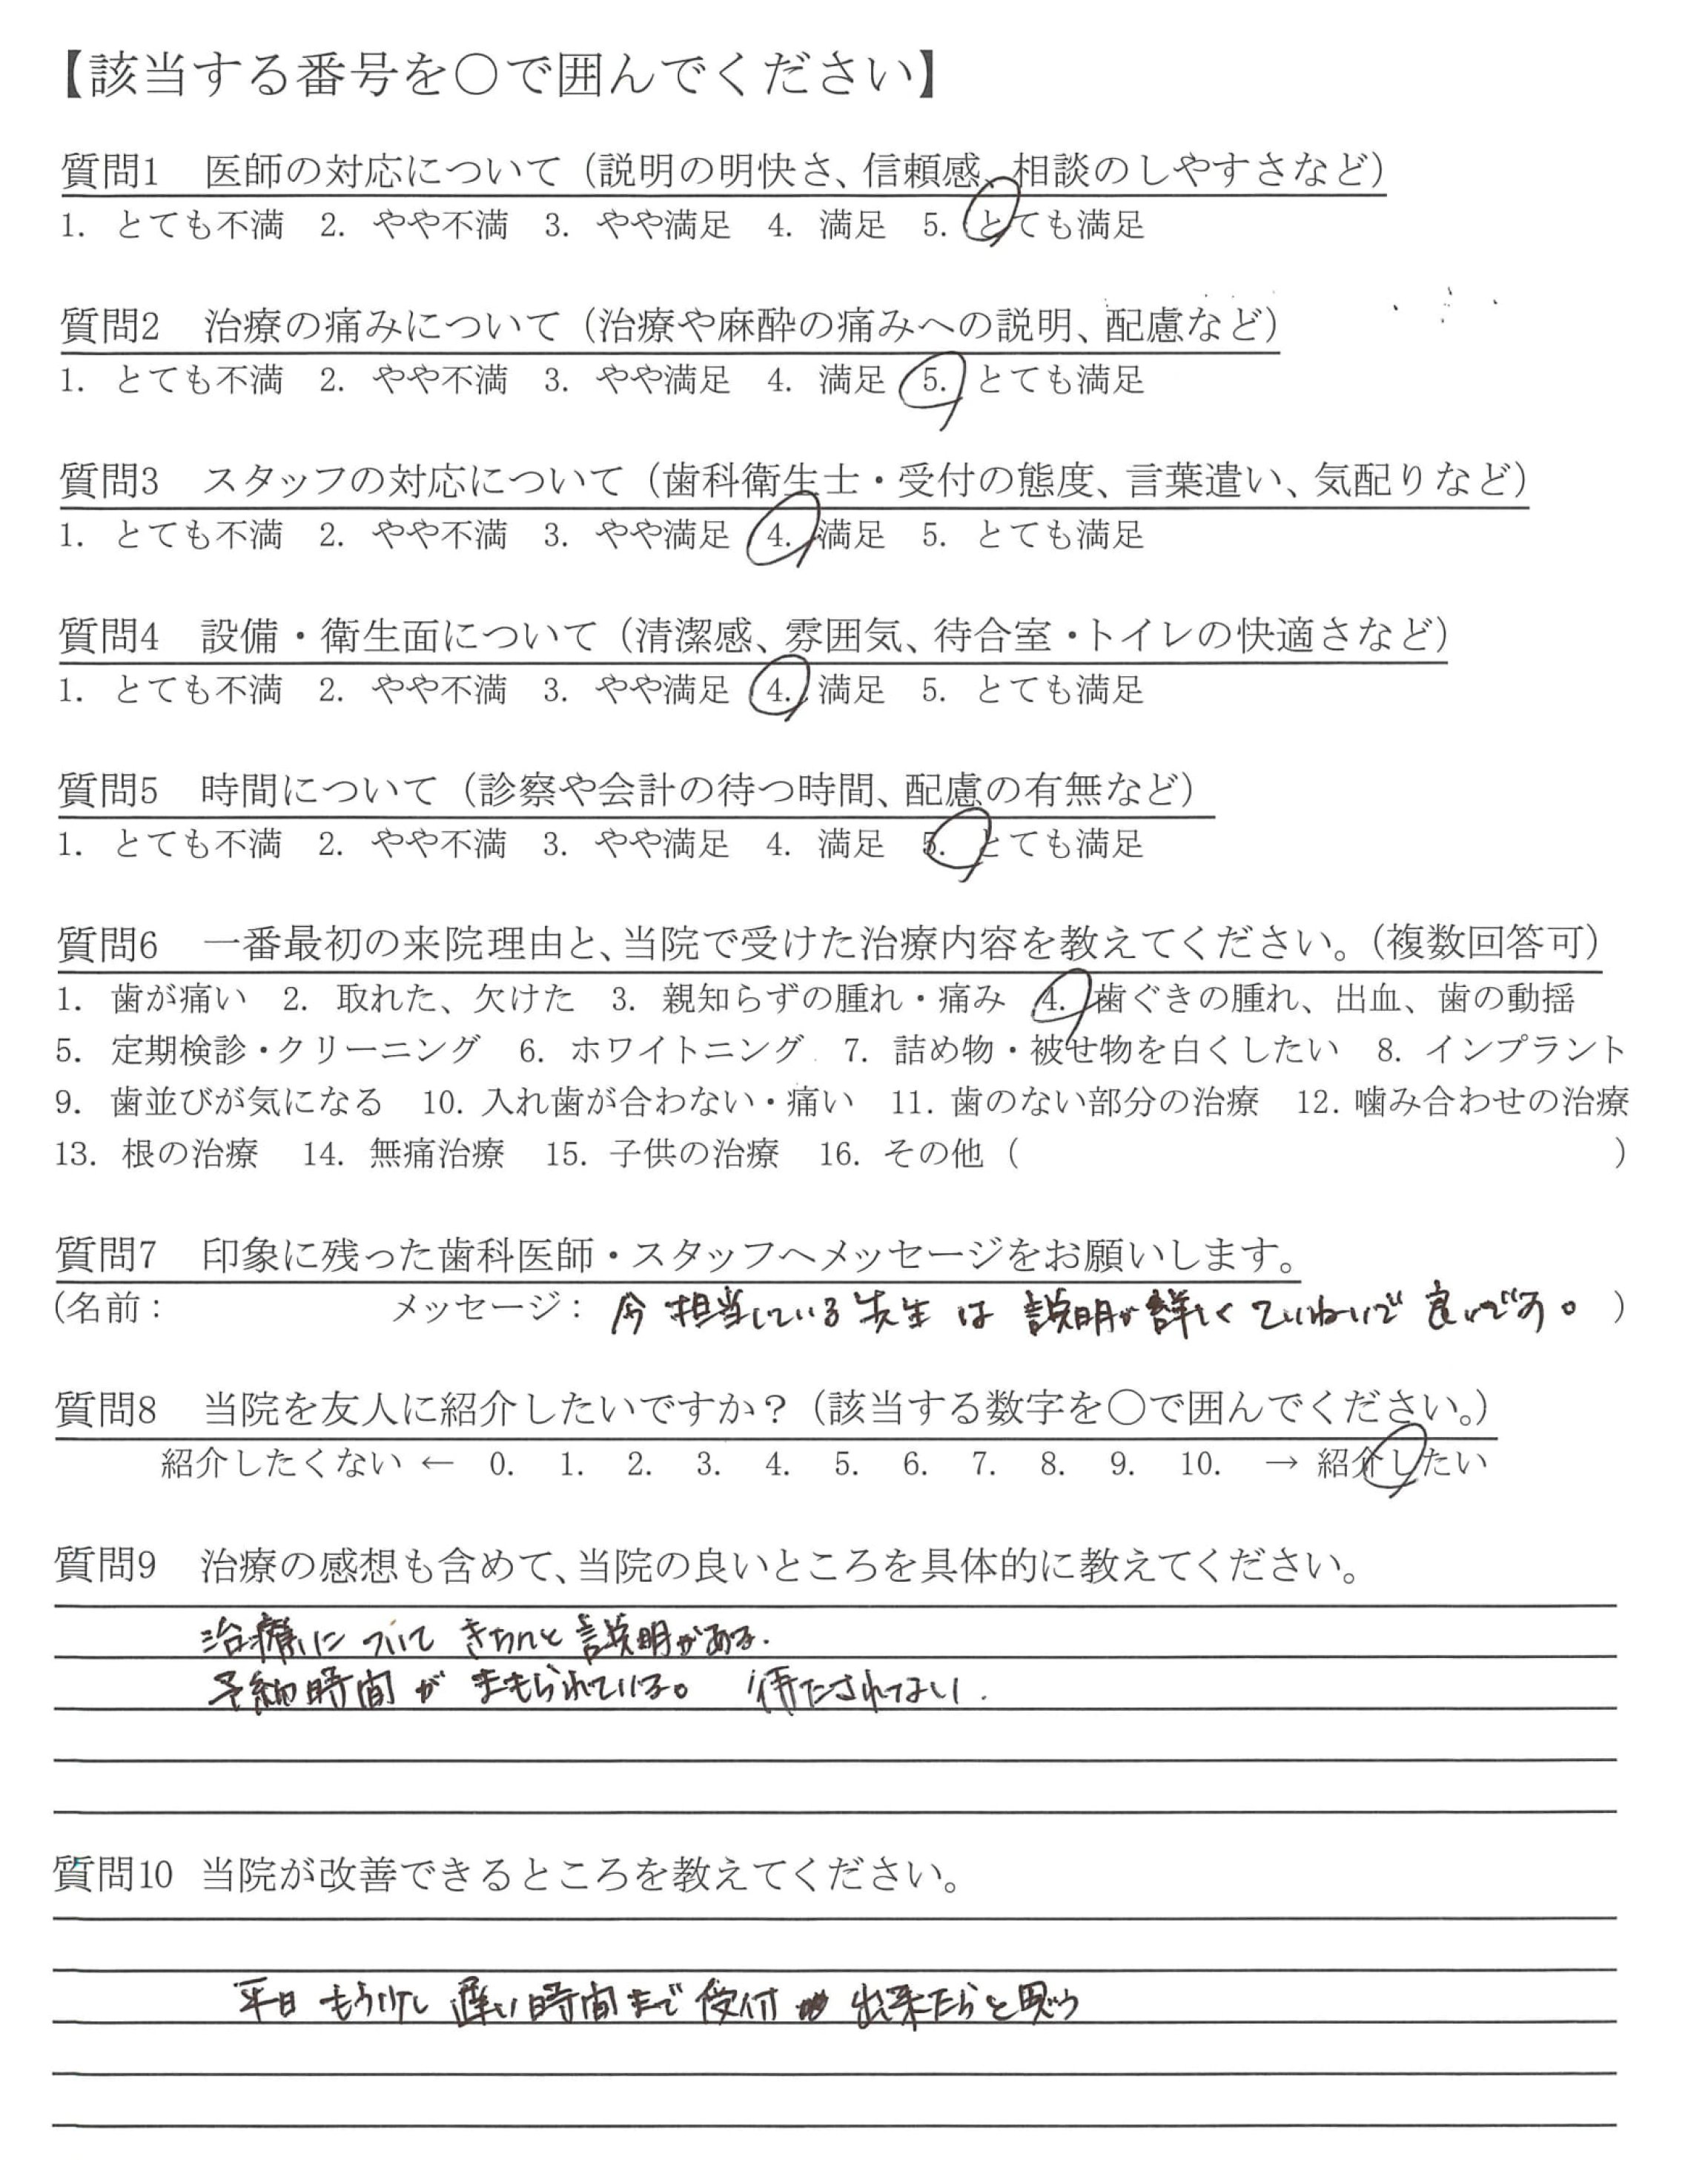 【該当する番号を○で囲んでください】
質問1　医師の対応について（説明の明快さ、信頼感、相談のしやすさなど）
1. とても不満　2. やや不満　3. やや満足　4. 満足　5. とても満足
質問2　治療の痛みについて（治療や麻酔の痛みへの説明、配慮など）
1. とても不満　2. やや不満　3. やや満足　4. 満足　5. とても満足
質問3　スタッフの対応について（歯科衛生士・受付の態度、言葉遣い、気配りなど）
1. とても不満　2. やや不満　3. やや満足　4. 満足　5. とても満足
質問4　設備・衛生面について（清潔感、雰囲気、待合室・トイレの快適さなど）
1. とても不満　2. やや不満　3. やや満足　4. 満足　5. とても満足
質問5　時間について（診察や会計の待つ時間、配慮の有無など）
1. とても不満　2. やや不満　3. やや満足　4. 満足　5. とても満足
質問6　一番最初の来院理由と、当院で受けた治療内容を教えてください。（複数回答可）
1. 歯が痛い　2. 取れた、欠けた　3. 親知らずの腫れ・痛み　4. 歯ぐきの腫れ、出血、歯の動揺
5. 定期検診・クリーニング　6. ホワイトニング　7. 詰め物・被せ物を白くしたい　8. インプラント
9. 歯並びが気になる　10. 入れ歯が合わない・痛い　11. 歯のない部分の治療　12. 噛み合わせの治療
13. 根の治療　14. 無痛治療　15. 子供の治療　16. その他（　）
質問7　印象に残った歯科医師・スタッフへメッセージをお願いします。
(名前：　メッセージ：今担当している先生は 説明が詳しくていねいで良いです。)
質問8　当院を友人に紹介したいですか？（該当する数字を○で囲んでください。）
紹介したくない ← 0. 1. 2. 3. 4. 5. 6. 7. 8. 9. 10. → 紹介したい
質問9　治療の感想も含めて、当院の良いところを具体的に教えてください。
治療について きちんと説明がある.
予約時間が まもられている。 待たされない.
質問10　当院が改善できるところを教えてください。
平日 もう少し 遅い時間まで 受付 出来たらと思う